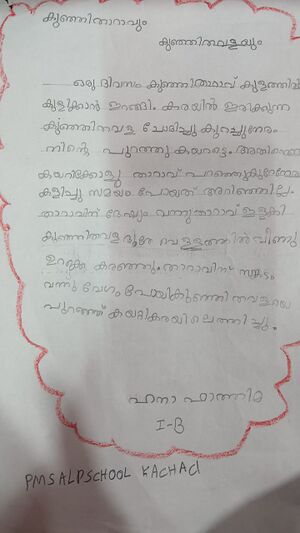 കുഞ്ഞിതാറാവും
കുഞ്ഞിതവളയും
ഒരു ദിവസം കുഞ്ഞിതാറാവ് കുളത്തിൽ
കുളിക്കാൻ ഇറങ്ങി. കരയിൽ ഇരിക്കുന്ന
കുഞ്ഞിതവള ചോദിച്ചു കുറച്ചുനേരം
നിന്റെ പുറത്തു കയറട്ടെ. അതിനെന്താ
കയറിക്കോളൂ താറാവ് പറഞ്ഞു
കളിച്ചു സമയം പോയത് അറിഞ്ഞില്ല.
താറാവിന് ദേഷ്യം വന്നു താറാവ് ഇളകി
കുഞ്ഞിതവള വെള്ളത്തിൽ വീണു
ഉറക്കെ കരഞ്ഞു. താറാവിന് സങ്കടം
വന്നു വേഗം പോയി കുഞ്ഞിതവളയെ
പുറത്ത് കയറ്റി കരയിലെത്തിച്ചു.
ഹനാ ഫാത്തിമ
I-B
PMSALPSCHOOL KACHADI